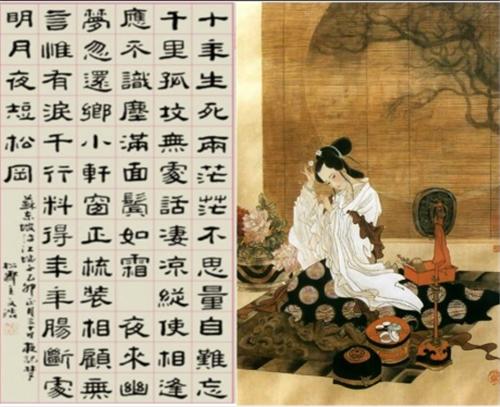 十年生死兩茫茫不思量自難忘
千里孤墳無處話淒涼縱使相逢
應不識塵滿面鬢如霜 夜來幽
夢忽還鄉小軒窗正梳裝相顧無
言惟有淚千行料得年年腸斷處
明月夜短松岡
蘇東坡江城子乙卯正月二十日夜記夢